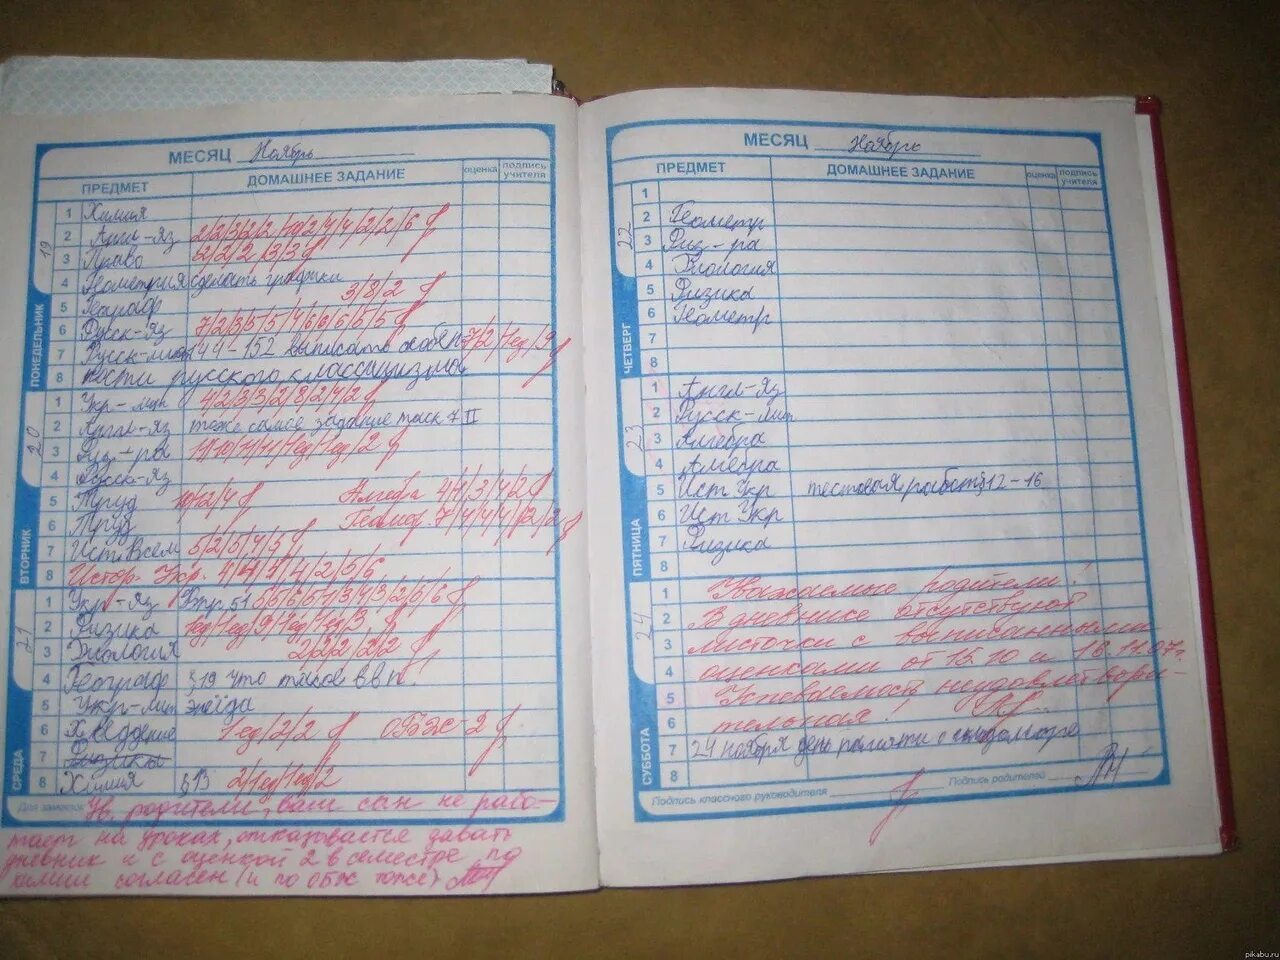 МЕСЯЦ Ноябрь
ПРЕДМЕТ ДОМАШНЕЕ ЗАДАНИЕ оценка подпись учителя
19
ПОНЕДЕЛЬНИК
1 Химия
2 Англ-яз 2/2/3/2/2/10/2/4/4/2/2/6
3 Право 2/2/2/3/3
4 Геометрия сделать графики
5 Географ 3/8/2
6 Русск-яз
7 Русск-лит 144-152 выписать особен 7/2/1ед/9
8 ности русского классицизма
20
ВТОРНИК
1 Укр-лит 4/2/3/3/2/8/2/4/2
2 Англ-яз тоже самое задание
3 Физ-ра
4 Русск-яз
5 Труд 10/2/4 Алгебра
6 Труд Геометр.
7 Ист.Всем 5/2/5/4/5
8 Истор. Укр. 4/4/7/4/2/5/6
21
СРЕДА
1 Укр-яз Впр.51
2 Физика 1ед/1ед/9/1ед/1ед/3
3 Биология 2/2/2/2/2
4 Географ §19 что такое ВВП.
5 Укр-лит энеїда
6 1ед/2/2 ОБЖ-2
7 Физика
8 Химия §13 2/1ед/1ед/2
Для заметок Ув. родители, ваш сын не рабо-
тает на уроках, отказывается давать
дневник и с оценкой 2 в семестре по
химии согласен (и по ОБЖ тоже)
МЕСЯЦ Ноябрь
ПРЕДМЕТ ДОМАШНЕЕ ЗАДАНИЕ оценка подпись учителя
22
ЧЕТВЕРГ
1
2 Геометр
3 Физ-ра
4 Биология
5 Физика
6 Геометр
7
8
23
ПЯТНИЦА
1 Англ-яз
2 Русск-лит
3 Алгебра
4 Алгебра
5 Ист Укр тестовая работа §12-16
6 Ист Укр
7 Физика
8
24
СУББОТА
1 Уважаемые родители!
2 В дневнике отсутствуют
3 листочки с выписанными
4 оценками от 15.10 и 16.11.07г.
5 Успеваемость неудовлетвори-
6 тельная!
7 24 ноября день памяти о голодоморе
8
Подпись классного руководителя Подпись родителей
pikabu.ru